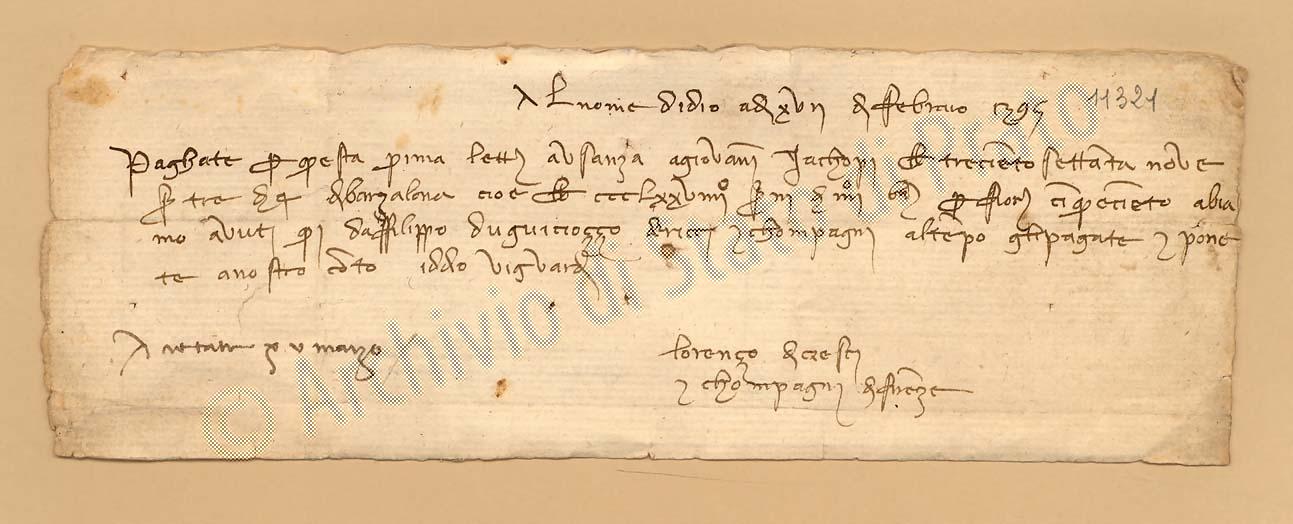 Al nome didio adi xvii di febraio 1395 11321
Paghate per questa prima lettera avsanza agiovani Jachopi lb trecientosettanta nove
s. tre d. 4 dbarzalona cioè lb ccclxxviiii° s. iii d. iiii° per fiorini cinqueciento abia
mo avuti qui daffilippo duguiciozzo dericci e chompagni altepo glipagate e pone
te anostro conto iddio viguardi
Acietata marzo
lorenzo di cresci
e chompagni di firenze
© Archivio di Stato di Prato